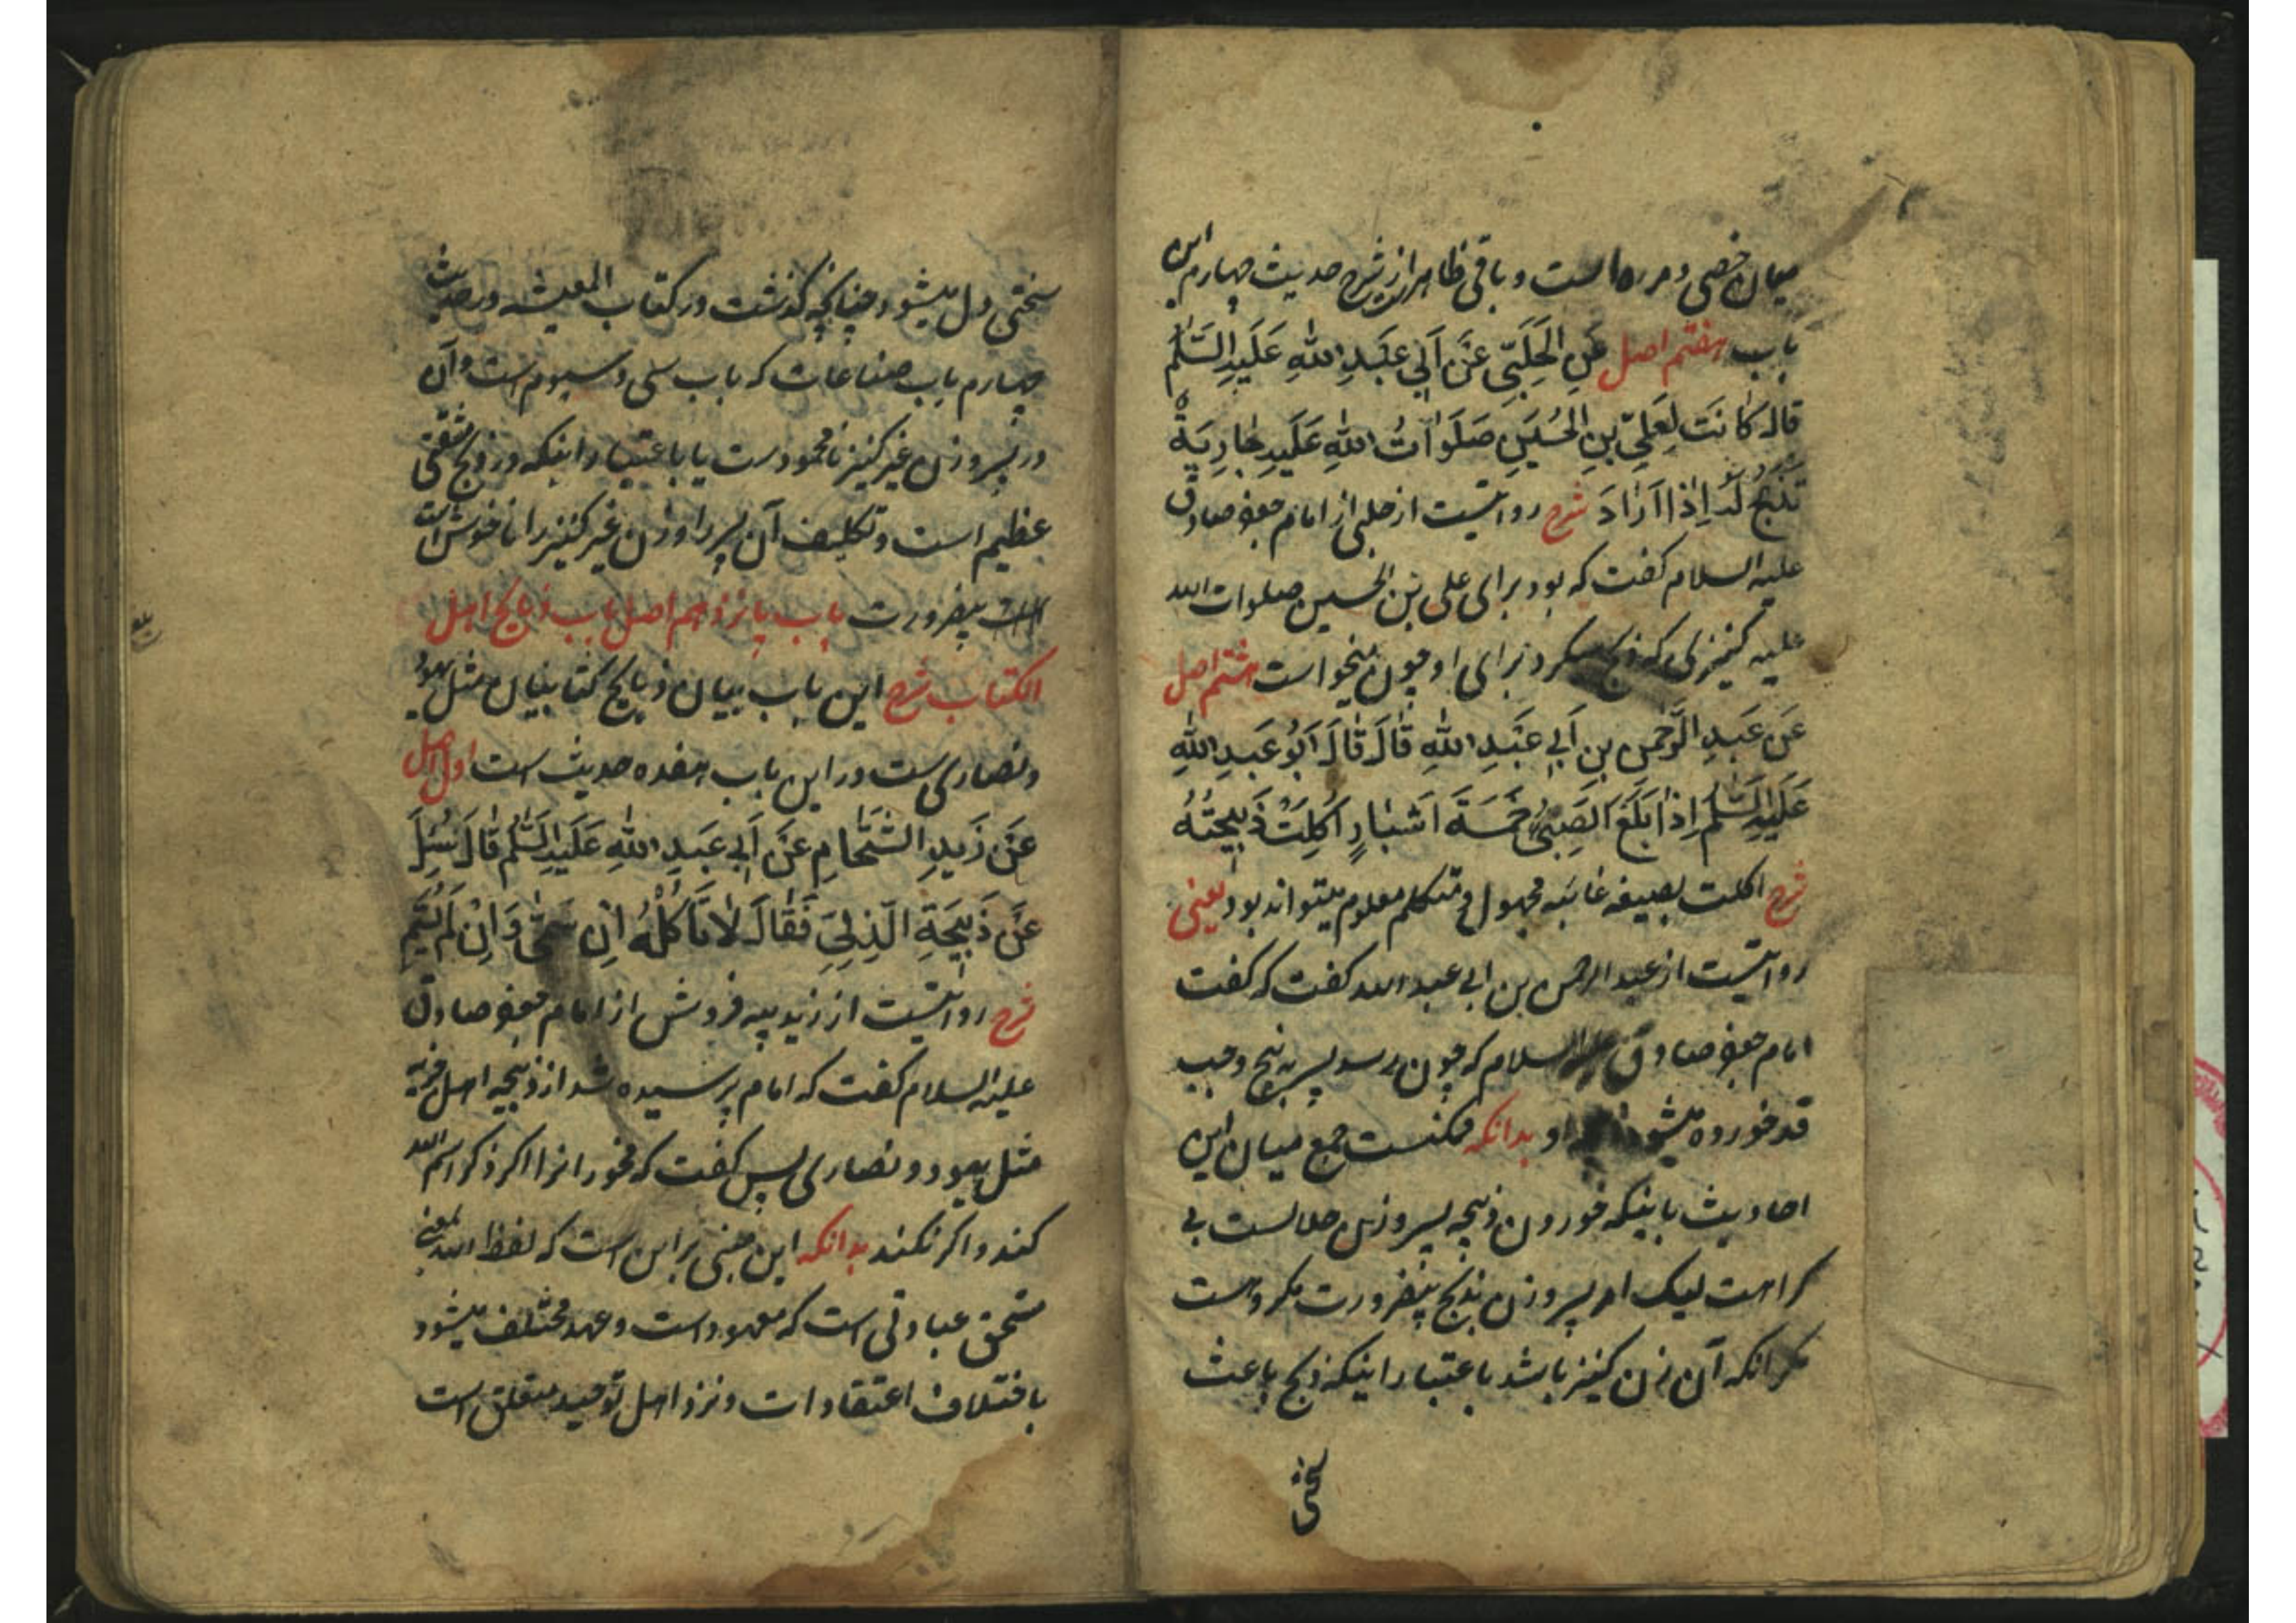 میان خصی و مره است و باقی ظاهر از شرح حدیث چهارم این
باب هفتم اصل عَنِ الْحَلَبِّی عَنْ اَبِی عَبْدِ اللّٰهِ عَلَیْهِ السَّلٰم
قالَ کانَتَ لِعَلِیِّ بْنِ الْحُسَیْنِ صَلَواتُ اللّٰهِ عَلَیْهِ جٰارِیَةٌ
تَذْبَحُ لَهُ اِذٰا اَرٰادَ شرح روایتست از حلبی از امام جعفر صادق
علیه السلام گفت که بود برای علی بن الحسین صلوات الله
علیه کنیزی که ذبح میکرد برای او چون میخواست هشتم اصل
عَنْ عَبْدِ الرَّحْمٰنِ بِنِ اَبِی عَبْدِ اللّٰهِ قٰالَ قٰالَ اَبُو عَبْدِ اللّٰهِ
عَلَیْهِ السَّلٰم اِذٰا بَلَغَ الصَّبِیُّ خَمْسَةَ اَشْبٰارٍ اُکِلَتْ ذَبِیحَتُهُ
شرح اکلت بصیغه غائبه مجهول و متکلم معلوم میتواند بود یعنی
روایتست از عبد الرحمن بن ابی عبد الله گفت که گفت
امام جعفر صادق علیه السلام که چون رسد پسر به پنج وجب
قد خورده میشود او بدانکه ممکنست جمع میان این
احادیث باینکه خوردن ذبیحه پسر و زن حلالست بی
کراهت لیک امر پسر و زن بذبح بیضرورت مکروهست
مگر انکه آن زن کنیز باشد باعتبار اینکه ذبح باعث
سختی
سختی دل میشود چنانچه گذشت در کتاب المعیشه در حدیث
چهارم باب صناعات که باب سی و سیوم است و آن
در پسر و زن غیر کنیز نامحمودست یا باعتبار اینکه در ذبح مشقتی
عظیم است و تکلیف آن پسر را و زن غیر کنیز را ناخوش است
بیضرورت باب پانزدهم اصل باب ذبایح اهل
الکتاب شرح این باب بیان ذبایح کتابیان مثل یهود
و نصاری ست در این باب هفده حدیث است اول اصل
عَنْ زَیْدِ الشَّحّٰامِ عَنْ اَبِی عَبْدِ اللّٰهِ عَلَیْهِ السَّلٰم قٰالَ سُئِلَ
عَنْ ذَبِیحَةِ الذِّمِّیِّ فَقٰالَ لٰا تَأْکُلْهُ اِنْ سَمّٰی وَ اِنْ لَمْ یُسَمِّ
شرح روایتست از زید پیه فروش از امام جعفر صادق
علیه السلام گفت که امام پرسیده شد از ذبیحه اهل جزیه
مثل یهود و نصاری پس گفت که مخور انرا اگر ذکر اسم الله
کند و اگر نکند بدانکه این مبنی بر این است که لفظ الله بمعنی
مستحق عبادتی است که معهود است و عهد مختلف میشود
باختلاف اعتقادات و نزد اهل توحید متعلق است